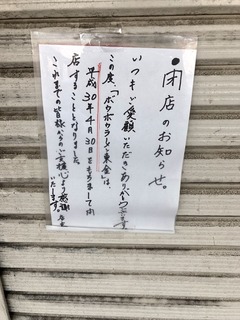 ●閉店のお知らせ。
いつもご愛顧いただきありがとうございます
この度、「ポカポカラーメン東金」は、
平成30年4月30日をもちまして閉
店することとなりました。
これまでの皆様からのご支援心より感謝
いたします。店主